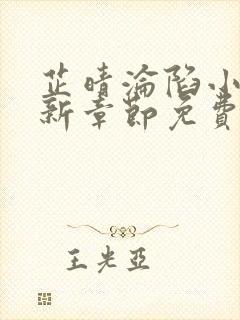 芷晴淪陷小
新章節免費
王光亞